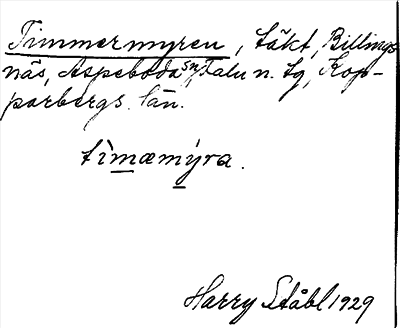 Timmermyren, täkt, Billings-
näs, Aspeboda sn, Falu n. tg, Kop-
parbergs län.
tìmæmýra.
Harry Ståhl 1929